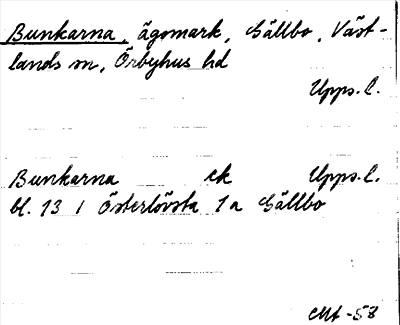 Bunkarna, ägomark, Gällbo, Väst-
lands sn, Örbyhus hd
Upps. l.
Bunkarna ek Upps. l.
bl. 13 I Österlövsta 1a Gällbo
-58